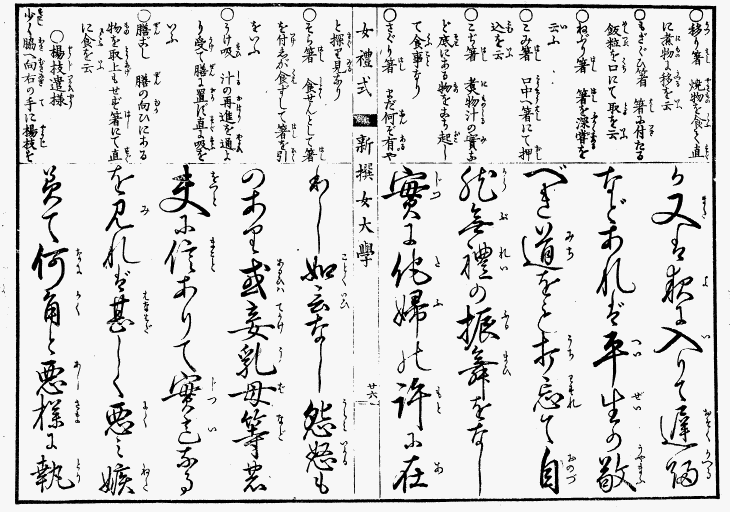 ○移り箸 焼物を食し直
に煮物に移を云
○もぎくひ箸 箸に付たる
飯粒を口にて取を云
○ねぶり箸 箸を深嘗を
云ふ
○こみ箸 口中へ箸にて押
込を云
○こじ箸 煮物汁の實な
ど底にある物をほり起し
て食事なり
○さぐり箸 まだ何を有や
り又は夜に入りて遲歸
などあれば平生の敬
べき道をも打忘て自
然無禮の振舞をなし
實に他婦の許に在
女禮式
新撰女大學
廿六
と探り見るなり
○そら箸 食せんとして箸
を付ながら食ずして箸を引
をいふ
○うけ吸 汁の再進を通よ
り受て膳に置ず直に吸を
いふ
○膳ごし 膳の向ひにある
物を取上もせず箸にて直
に食を云
○楊枝遣様
少く脇へ向右の手に楊枝を
なし怨怒も
のあり或妾乳母等
夫に信ありて實
を見れば甚しく悪み嫉
て何角と悪様に執